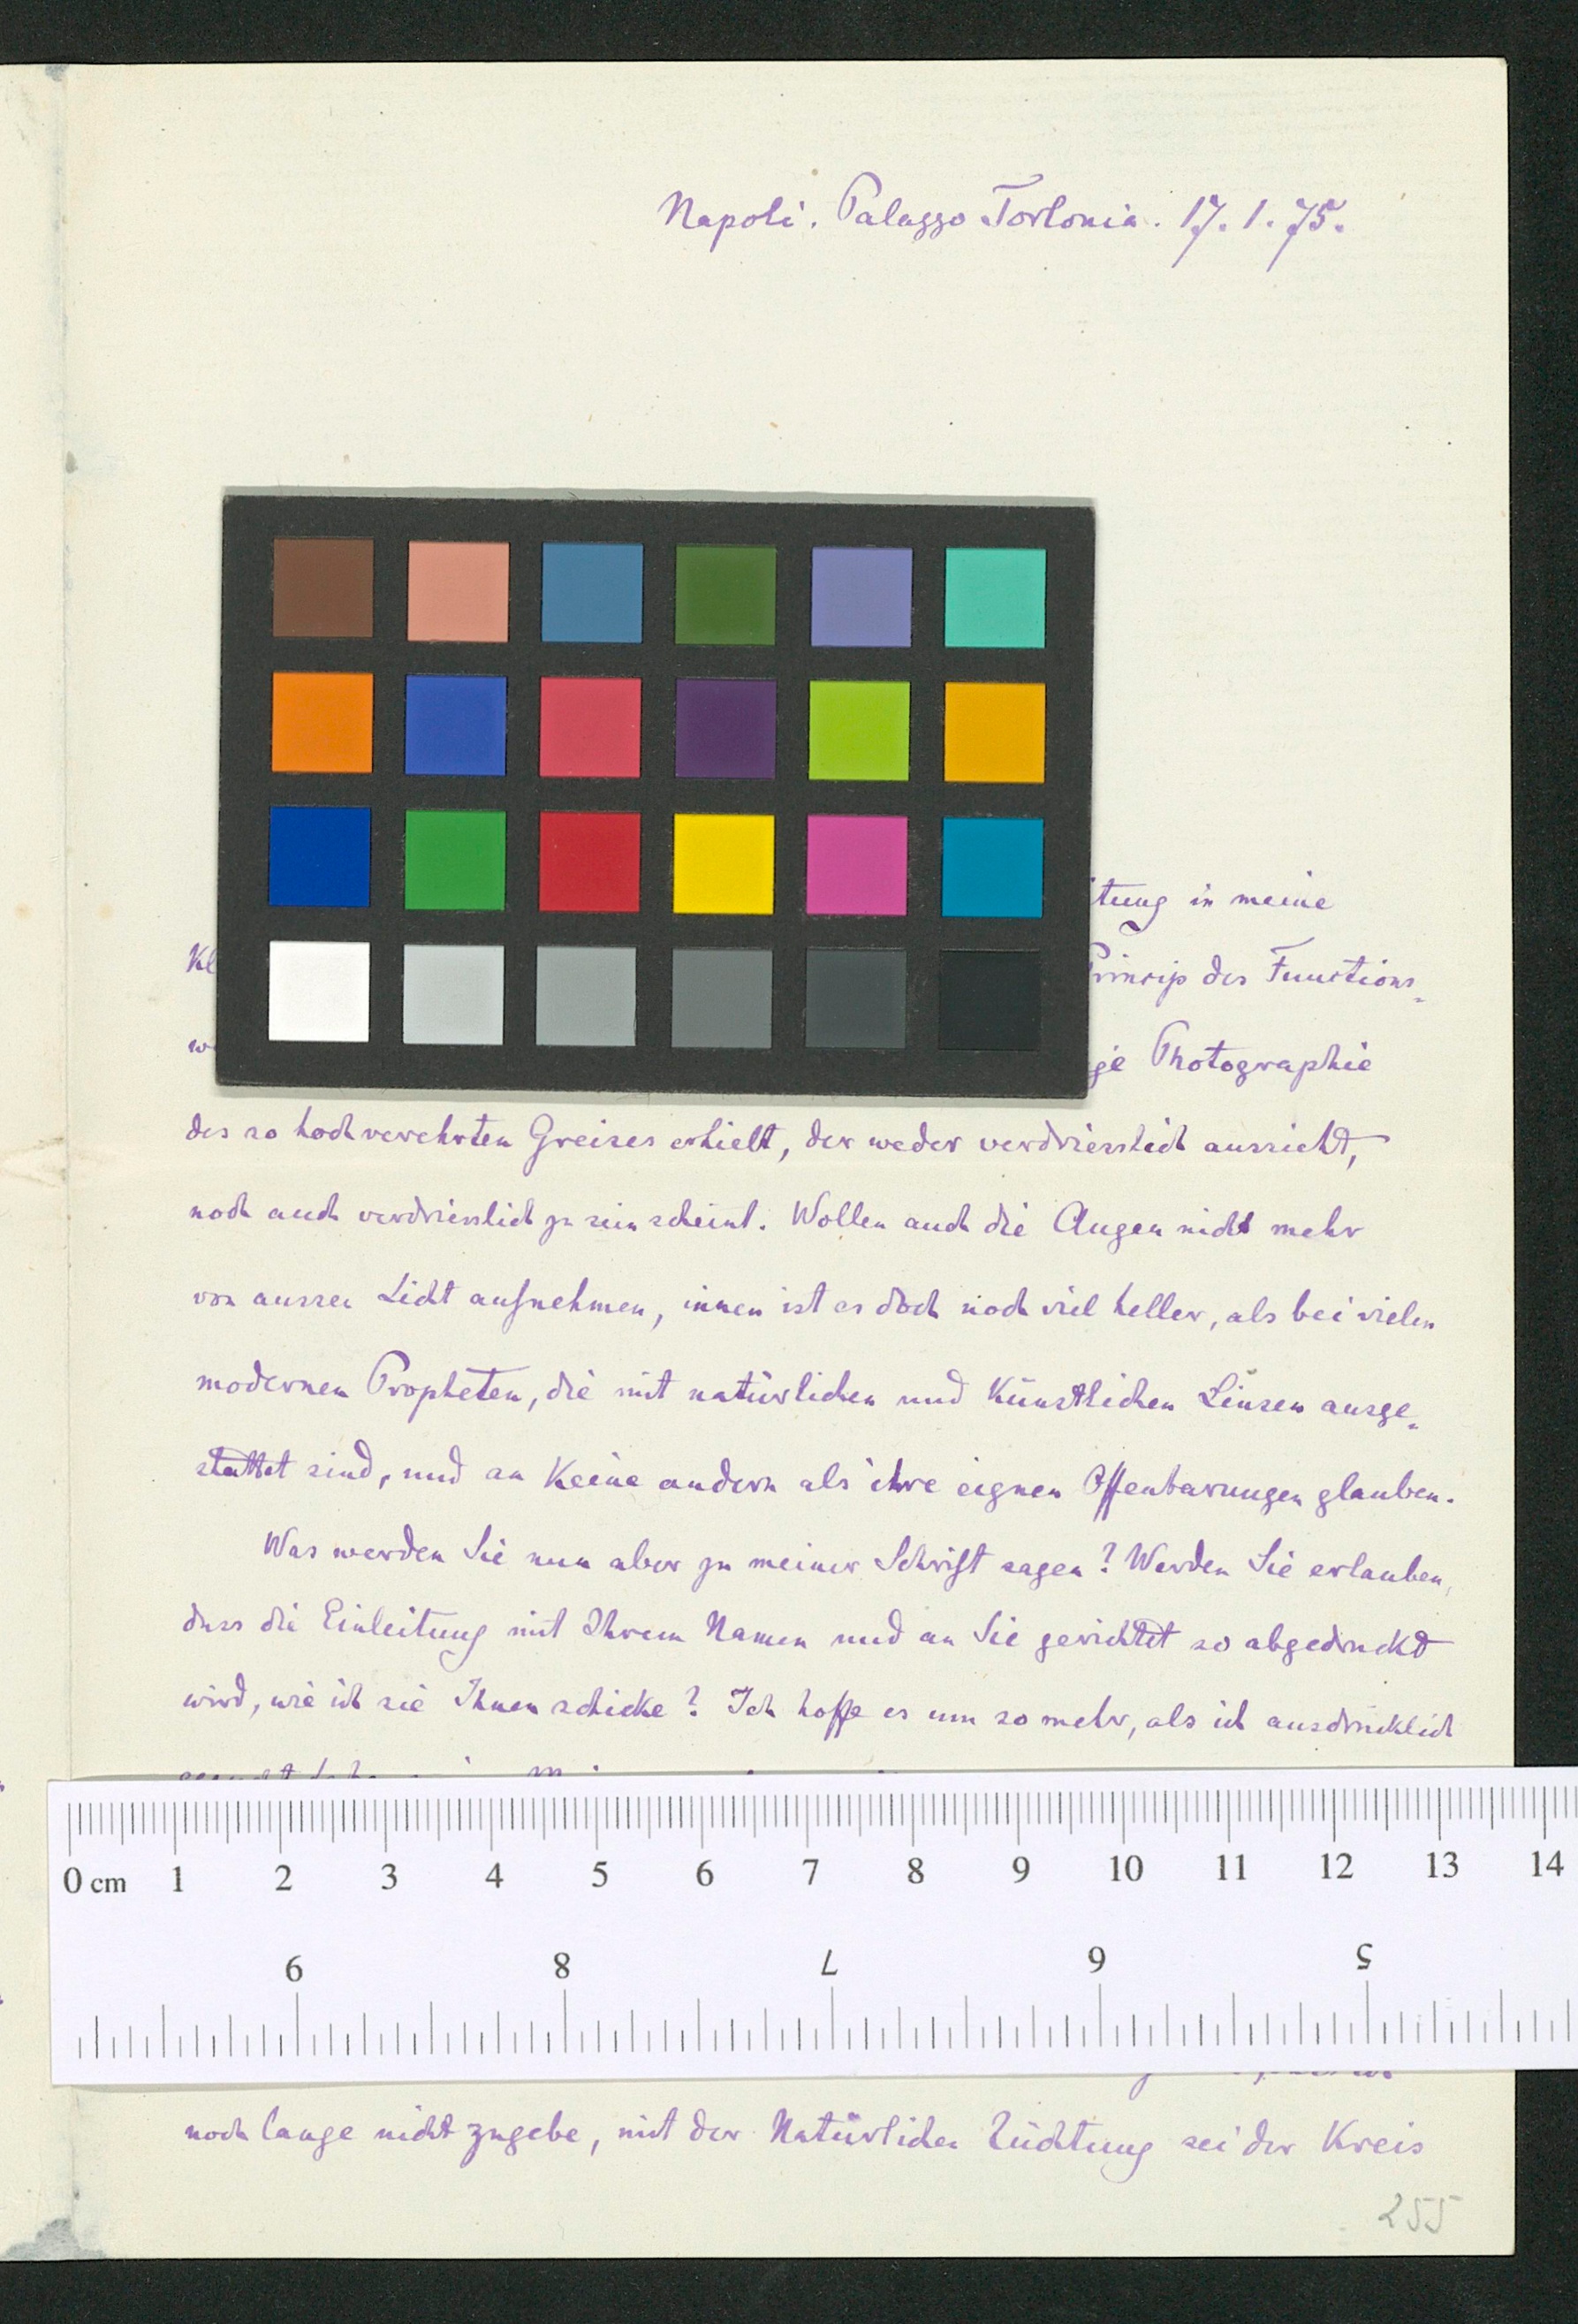 Napoli. Palazzo Torlonia. 17. 1. 75.
itung in meine
Kl
Princip des Functions-
w
ge Photographie
des so hochverehrten Greises erhielt, der weder verdriesslich aussieht,
noch auch verdriesslich zu sein scheint. Wollen auch die Augen nicht mehr
von aussen Licht aufnehmen, innen ist es doch noch viel heller, als bei vielen
modernen Propheten, die mit natürlichen und künstlichen Linsen ausge-
stattet sind, und an keine andern als ihre eignen Offenbarungen glauben.
Was werden Sie nun aber zu meiner Schrift sagen? Werden Sie erlauben,
dass die Einleitung mit Ihrem Namen und an Sie gerichtet so abgedruckt
wird, wie ich sie Ihnen schicke? Ich hoffe es um so mehr, als ich ausdrücklich
0 cm 1 2 3 4 5 6 7 8 9 10 11 12 13 14
9 8 7 6 5
noch lange nicht zugebe, mit der Natürlichen Züchtung sei der Kreis
255